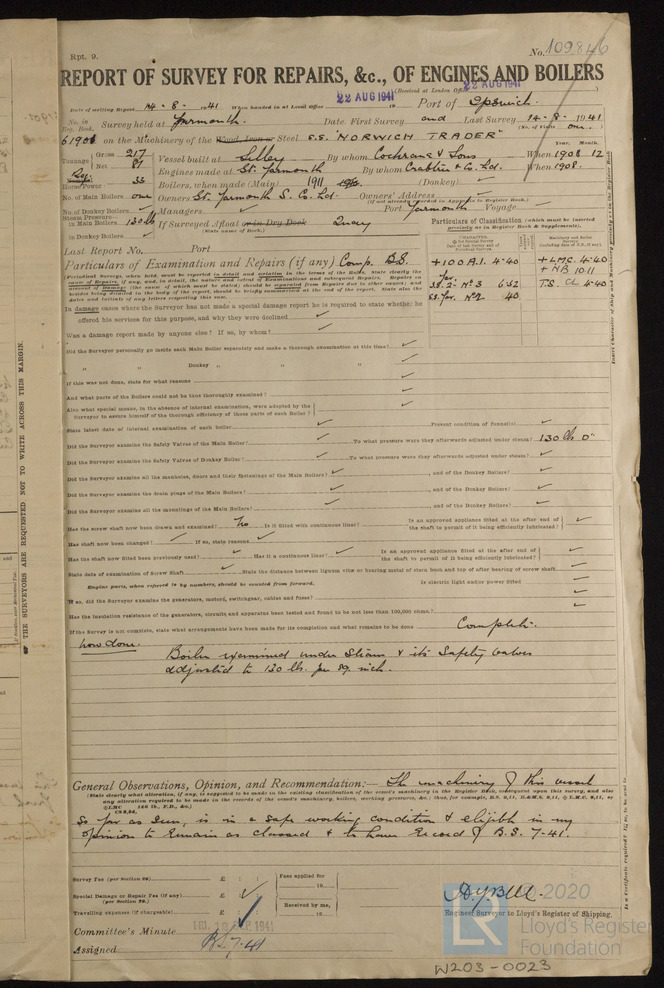 Rpt. 9.
No. 109846
REPORT OF SURVEY FOR REPAIRS, &c., OF ENGINES AND BOILERS
(Received at London Office 22 AUG 1941)
Date of writing Report 14-8-1941 When handed in at Local Office 22 AUG 1941 19 Port of Ipswich.
No. in Reg. Book. Survey held at Yarmouth. Date, First Survey and Last Survey 14-8-1941
(No. of Visits one.)
61901 on the Machinery of the Wood, Iron or Steel S.S. "NORWICH TRADER"
Tonnage Gross 217 Net 87 Vessel built at Selby By whom Cochrane & Sons When 1908 12
Year. Month.
Engines made at Gt. Yarmouth By whom Crabtree & Co. Ltd. When 1908.
Horse Power 33 Boilers, when made (Main) 1911 (Donkey)
No. of Main Boilers one Owners Gt. Yarmouth S. Co. Ltd. Owners' Address
(if not already recorded in Appendix to Register Book.)
No. of Donkey Boilers Managers Port Yarmouth Voyage
Steam Pressure in Main Boilers 130 lbs If Surveyed Afloat or in Dry Dock Quay
(State name of Dock.)
in Donkey Boilers
Particulars of Classification (which must be inserted precisely as in Register Book & Supplements).
+100A.1. 4.40 +LMC. 4.40
+NB 10.11
SS. 2- No 3 6.32 T.S. CL 4.40
SS. Yar. No 2 40
Last Report No. Port
Particulars of Examination and Repairs (if any) Comp. B.S.
In damage cases where the Surveyor has not made a special damage report he is required to state whether he
offered his services for this purpose, and why they were declined
Was a damage report made by anyone else? If so, by whom?
Did the Surveyor personally go inside each Main Boiler separately and make a thorough examination at this time?
" " Donkey " " "
If this was not done, state for what reasons
And what parts of the Boilers could not be thus thoroughly examined?
Also what special means, in the absence of internal examination, were adopted by the
Surveyor to assure himself of the thorough efficiency of those parts of each Boiler?
State latest date of internal examination of each boiler Present condition of Funnel(s)
Did the Surveyor examine the Safety Valves of the Main Boiler? To what pressure were they afterwards adjusted under steam? 130 lbs
Did the Surveyor examine the Safety Valves of Donkey Boiler? To what pressure were they afterwards adjusted under steam?
Did the Surveyor examine all the manholes, doors and their fastenings of the Main Boilers? , and of the Donkey Boilers?
Did the Surveyor examine the drain plugs of the Main Boilers? , and of the Donkey Boilers?
Did the Surveyor examine all the mountings of the Main Boilers? , and of the Donkey Boilers?
Has the screw shaft now been drawn and examined? No Is it fitted with continuous liner? Is an approved appliance fitted at the after end of
the shaft to permit of it being efficiently lubricated?
Has shaft now been changed? If so, state reasons
Has the shaft now fitted been previously used? Has it a continuous liner? Is an approved appliance fitted at the after end of
the shaft to permit of it being efficiently lubricated?
State date of examination of Screw Shaft State the distance between lignum vitæ or bearing metal of stern bush and top of after bearing of screw shaft
Engine parts, when referred to by numbers, should be counted from forward. Is electric light and/or power fitted
If so, did the Surveyor examine the generators, motors, switchgear, cables and fuses?
Has the insulation resistance of the generators, circuits and apparatus been tested and found to be not less than 100,000 ohms?
If the Survey is not complete, state what arrangements have been made for its completion and what remains to be done Complete.
Now done.
Boiler examined under steam & its Safety Valves
adjusted to 130 lb. per sq. inch.
General Observations, Opinion, and Recommendation:— The machinery of this vessel
(State clearly what alteration, if any, is suggested to be made in the existing classification of the vessel's machinery in the Register Book, consequent upon this survey, and also
so far as seen, is in a safe working condition & eligible in my
opinion to remain as classed & to have record of B.S. 7-41.
Survey Fee (per Section 29) £ : :
Special Damage or Repair Fee (if any) (per Section 29.) £
Travelling expenses (if chargeable) £
Fees applied for 19
Received by me, 19
Engineer Surveyor to Lloyd's Register of Shipping.
Committee's Minute
Assigned BS. 7.41
THE SURVEYORS ARE REQUESTED NOT TO WRITE ACROSS THIS MARGIN.
LR
2020
Lloyd's Register
Foundation
W203-0023